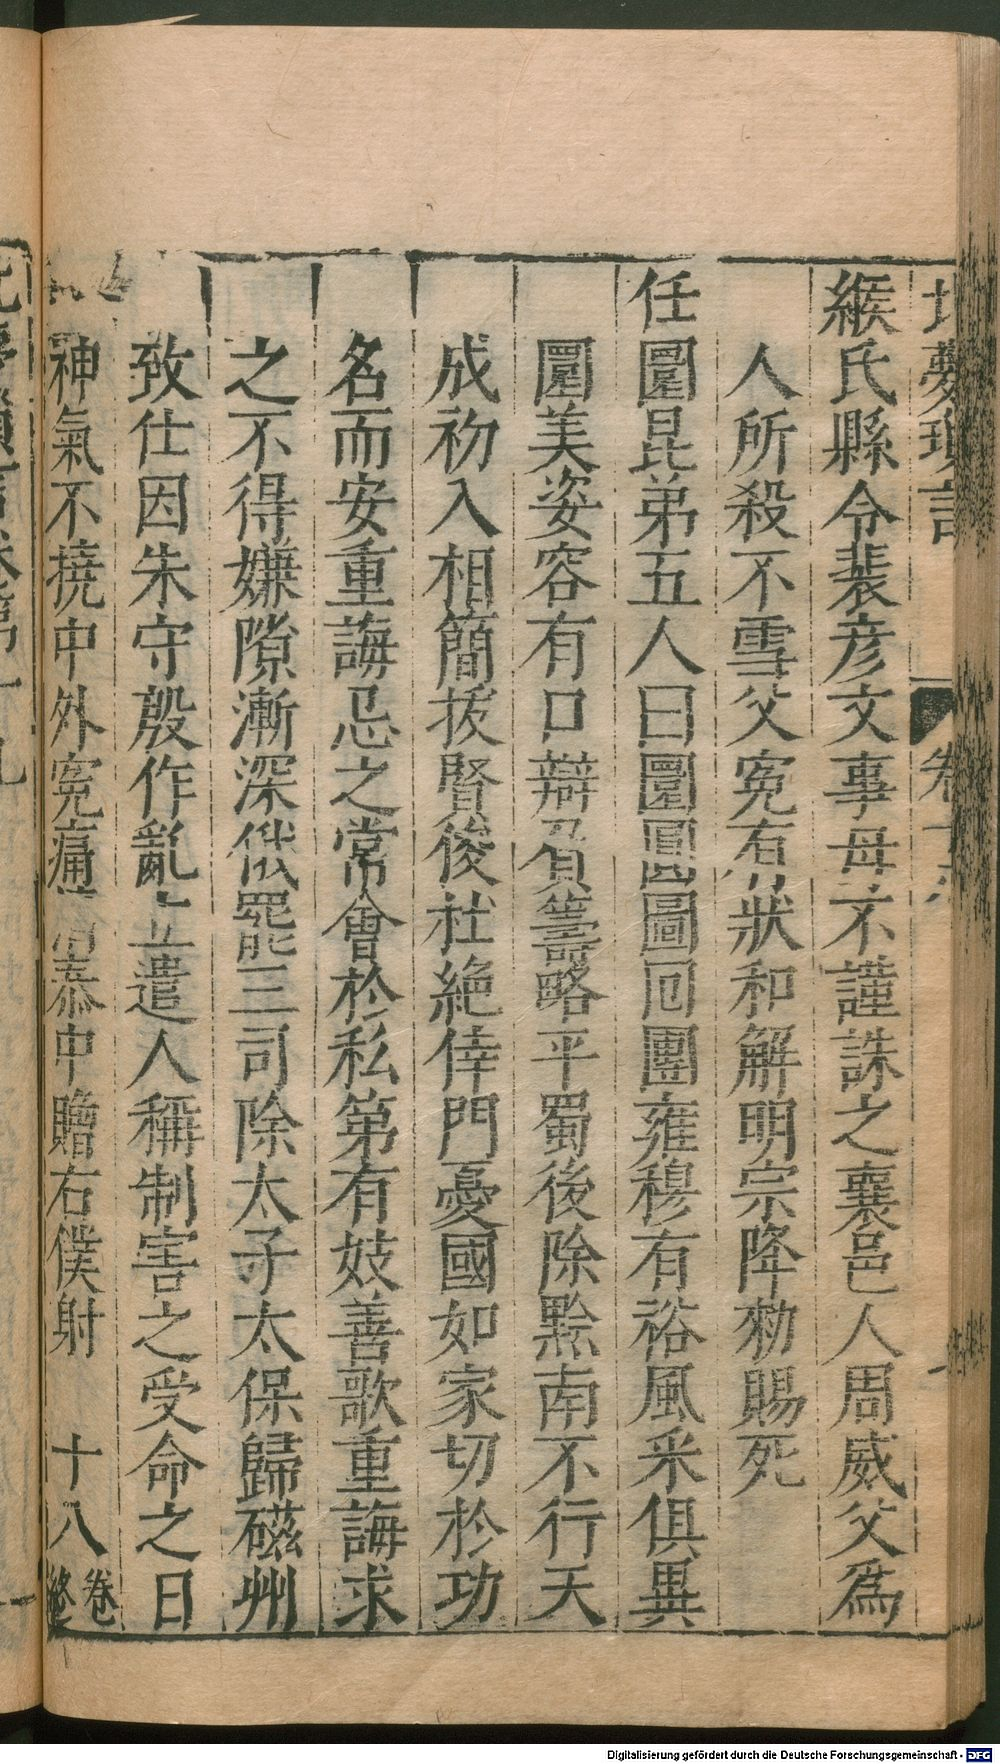 夢瑣言 卷十八
緱氏縣令裴彦文事母不謹誅之襄邑人周威父爲
人所殺不雪父寃有狀和解明宗降勑賜死
任圜昆弟五人曰圜圓圖回團雍穆有裕風采俱異
圜美姿容有口辯負籌略平蜀後除黔南不行天
成初入相簡拔賢俊杜絶倖門憂國如家切於功
名而安重誨忌之常會於私第有妓善歌重誨求
之不得嫌隙漸深俄罷三司除太子太保歸磁州
致仕因朱守殷作亂立遣人稱制害之受命之日
神氣不撓中外寃痛清泰中贈右僕射 十八卷終
Digitalisierung gefördert durch die Deutsche Forschungsgemeinschaft - DFG